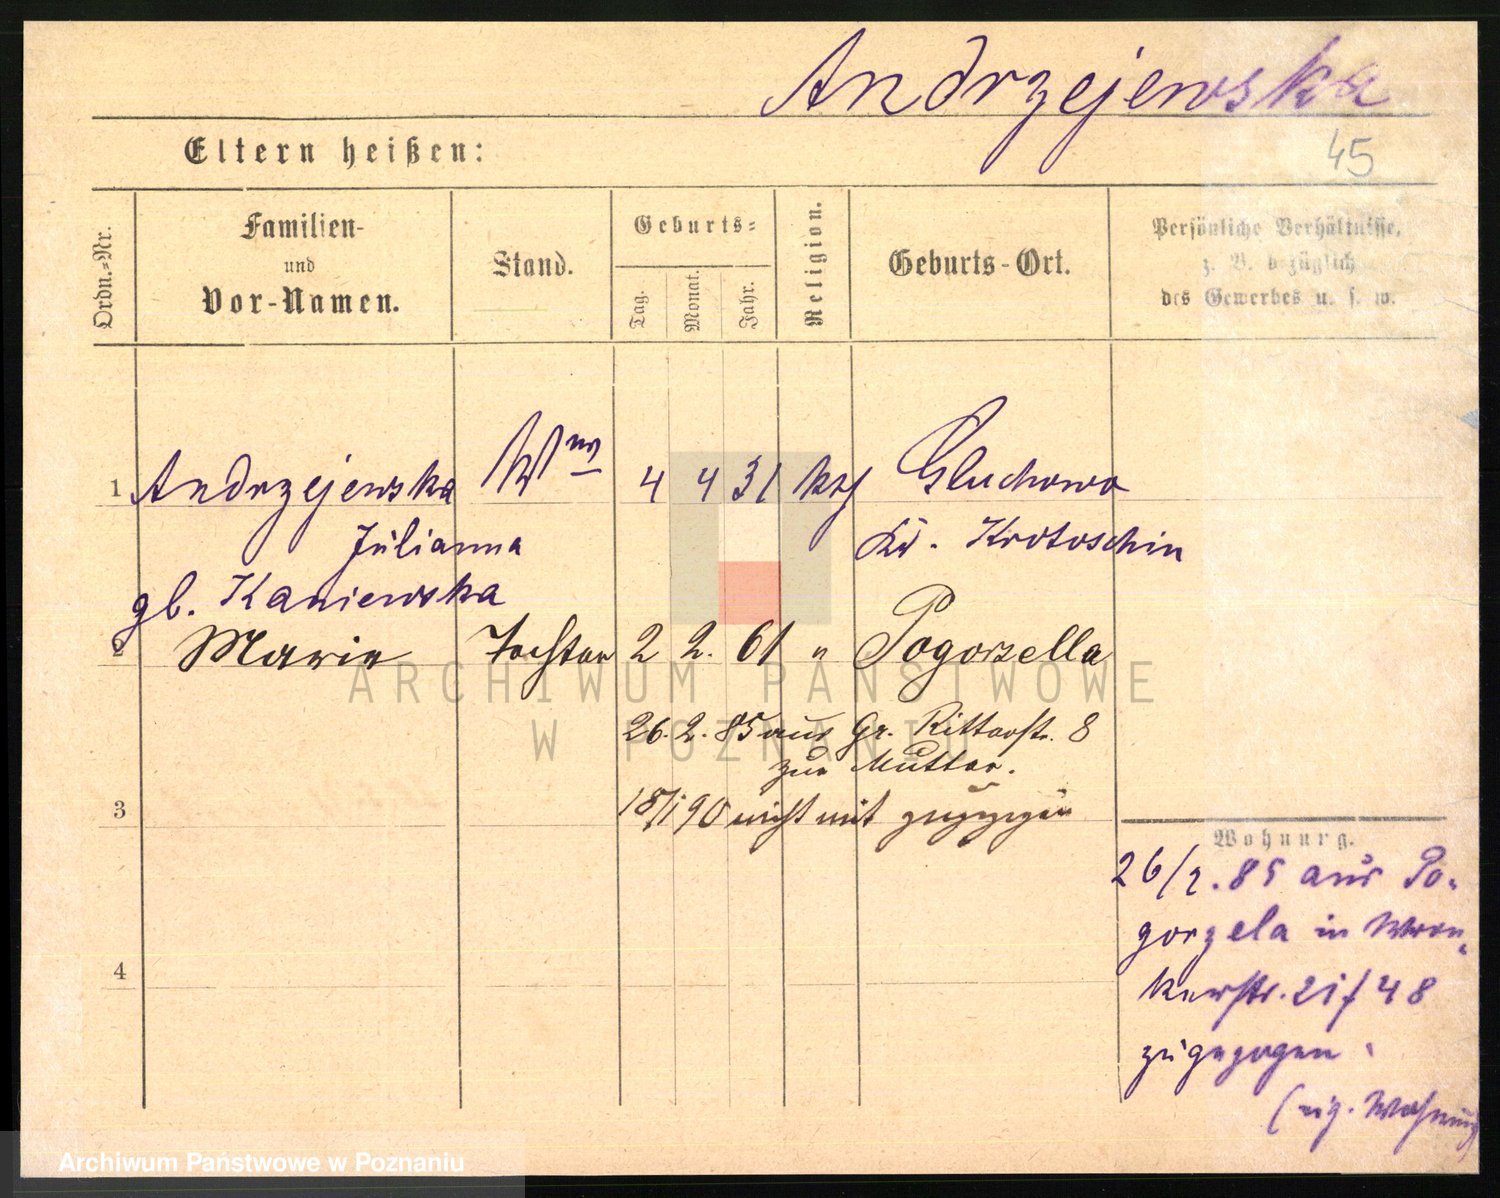 Andrzejewska
45
Eltern heißen:
Ordn.-Nr.
Familien-
und
Vor-Namen.
Stand.
Geburts-
Tag.
Monat.
Jahr.
Religion.
Geburts-Ort.
Persönliche Verhältnisse,
z. B. bezüglich
des Gewerbes u. s. w.
1 Andrzejewska Wwe 4 4 31 kth Gluchowo
Julianna Kr. Krotoschin
gb. Kaniewska
2 Marie Tochter 2 2. 61 " Pogorzella
26. 2. 85 aus Gr. Ritterstr. 8
zur Mutter.
3 18/1 90 nicht mit zugezogen
Wohnung.
26/2. 85 aus Po-
gorzela in Wron-
kerstr. 21 / 48
zugezogen.
(eig. Wohnung)
4
ARCHIWUM PAŃSTWOWE
W POZNANIU
Archiwum Państwowe w Poznaniu